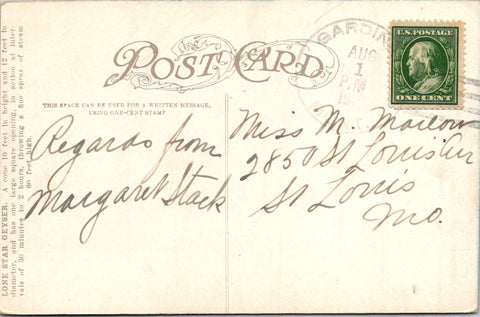 POST CARD
THIS SPACE CAN BE USED FOR A WRITTEN MESSAGE,
USING ONE-CENT STAMP
Regards from
Margaret Stack
Miss M. Marlow
2850 St Louis Av
St Louis
Mo.
GARDIN
AUG
1
P.M
U.S. POSTAGE
ONE CENT
LONE STAR GEYSER. A cone 10 feet in height and 12 feet in
diameter, and has one large square opening, in action at inter-
vals of 30 minutes to 2 hours, throwing a fine spray of steam
60 feet high.